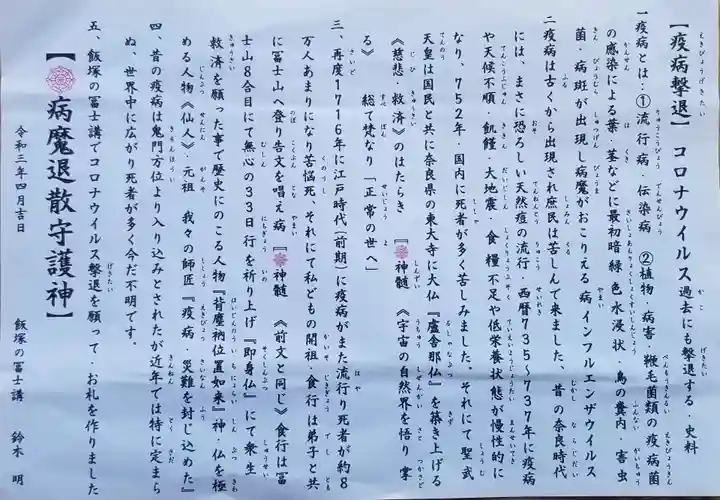 【疫病撃退】コロナウイルス過去にも撃退する・史料
一疫病とは:①流行病・伝染病 ②植物・病害・鞭毛菌類の疫病菌
の感染による葉・茎などに最初暗緑色水浸状・鳥の糞内・害虫
菌・病斑が出現し病魔がおこりえる病インフルエンザウイルス
二疫病は古くから出現され庶民は苦しんで来ました、昔の奈良時代
には、まさに恐ろしい天然痘の流行・西暦735～737年に疫病
や天候不順・飢饉・大地震・食糧不足や低栄養状態が慢性的に
なり、752年・国内に死者が多く苦しみました。それにて聖武
天皇は国民と共に奈良県の東大寺に大仏『盧舎那仏』を築き上げる
《慈悲・救済》のはたらき 『神髄 《宇宙の自然界を悟り 掌
る》 総て梵なり「正常の世へ」
三、再度1716年に江戸時代(前期)に疫病がまた流行り死者が約8
万人あまりになり苦悩死、それにて私どもの開祖・食行は弟子と共
に冨士山へ登り告文を唱え病『神髄 《前文と同じ》食行は冨
士山8合目にて無心の33日行を祈り上げ『即身仏』にて衆生
救済を願った事で歴史にのこる人物『背塵衲位置如来』神・仏を極
める人物《仙人》・元祖 我々の師匠『疫病 災難を封じ込めた』
四、昔の疫病は鬼門方位より入り込みとされたが近年では特に定まら
ぬ、世界中に広がり死者が多く今だ不明です。
五、飯塚の冨士講でコロナウイルス撃退を願って・お札を作りました
【病魔退散守護神】
令和三年四月吉日
飯塚の冨士講 鈴木 明